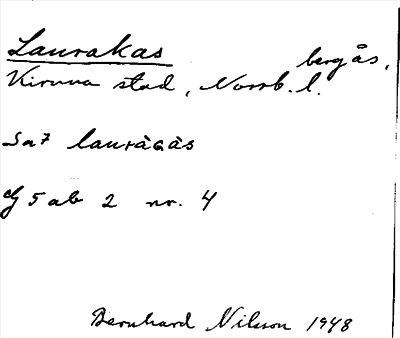 Laurakas bergås,
Kiruna stad, Norrb. l.
Sa7 lauràgàs
G 5 ab 2 nr. 4
Bernhard Nilsson 1948